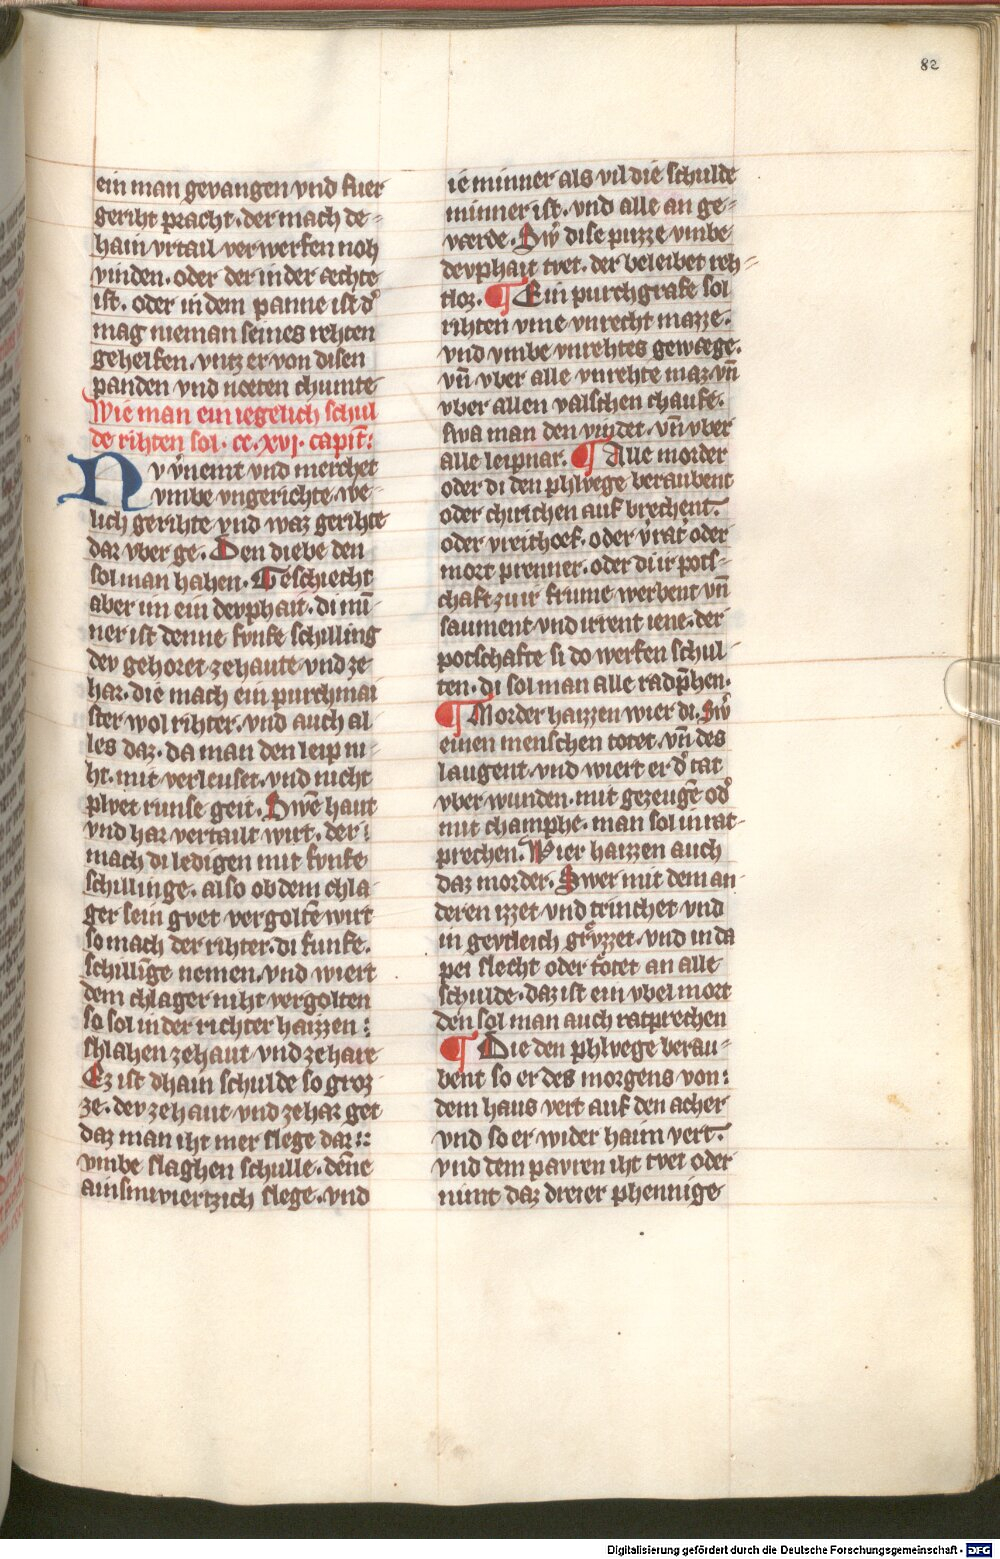 82
ein man gevangen vnd fuer
geriht pracht. der mach de-
hain vrtail verwerfen noh
vinden. oder der in der aechte
ist. oder in dem panne ist dˀ
mag nieman seines rehten
gehelfen. vntz er von disen
panden vnd noeten chumte
Wie man ein iegelich schul
de rihten sol. cc. xvj. capit̄:
Nv v̾nemt vnd merchet
vmbe vngerichte. we-
lich gerihte vnd waz gerihte
dar vber ge. Den diebe den
sol man hahen. Geschiecht
aber im ein devphait. di mī-
ner ist denne fvnfe schilling
dev gehoret ze haute vnd ze
har. die mach ein purchmai
ster wol rihter. vnd auch al-
les daz. da man den leip ni-
ht. mit verleuset. vnd nicht
plvet runse geit. Swē haut
vnd har vertailt wirt. der:
mach di ledigen mit fvnfe
schillinge. also ob dem chla-
ger sein gvet vergoltē wirt
so mach der rihter. di funfe.
schillīge nemen. vnd wiert
dem chlager niht vergolten
so sol in der richter haizzen:
slahen ze haut vnd ze hare
Ez ist dhain schulde so groz-
ze. dev ze haut vnd ze har get
daz man iht mer slege dar::
vmbe slaghen schulle. dēne
ainsmviertzich slege. vnd
ie minner als vil die schulde
minner ist. vnd alle an ge-
værde. Sw̾ dise puzze vmbe
devphait tvet. der beleibet reh-
tloz. ¶ Ein purchgrafe sol
rihten vme vnrecht mazze.
vnd vmbe vnrehtes gewæge.
vn̄ vber alle vnrehte maz vn̄
vber allen valschen chaufe.
swa man den vindet. vn̄ vber
alle leipnar. ¶ Alle morder
oder di den phlvege beraubent
oder chirichen auf brechent.
oder vreithoef. oder v̾rat̾ oder
mort prenner. oder di ir pots-
chaft zuir frume werbent vn̄
saument vnd irrent iene. der
potschafte si do werfen schul-
ten. di sol man alle radp̄chen.
¶ Morder haizzen wier di. Sw̾
einen menschen totet. vn̄ des
laugent. vnd wiert er d̾ tat
vber wunden. mit gezeugē odˀ
mit champhe. man sol in rat-
prechen. Wier haizzen auch
daz morder. Swer mit dem an
deren izzet vnd trinchet vnd
in gevtleich grv̊zzet. vnd in da
pei slecht oder tötet an alle
schulde. daz ist ein vbel mort
den sol man auch ratprechen
¶ Die den phlvege berau-
bent so er des morgens von:
dem haus vert auf den acher
vnd so er wider haim vert.
vnd dem pavren iht tvet oder
nimt daz dreier phennige
Digitalisierung gefördert durch die Deutsche Forschungsgemeinschaft - DFG